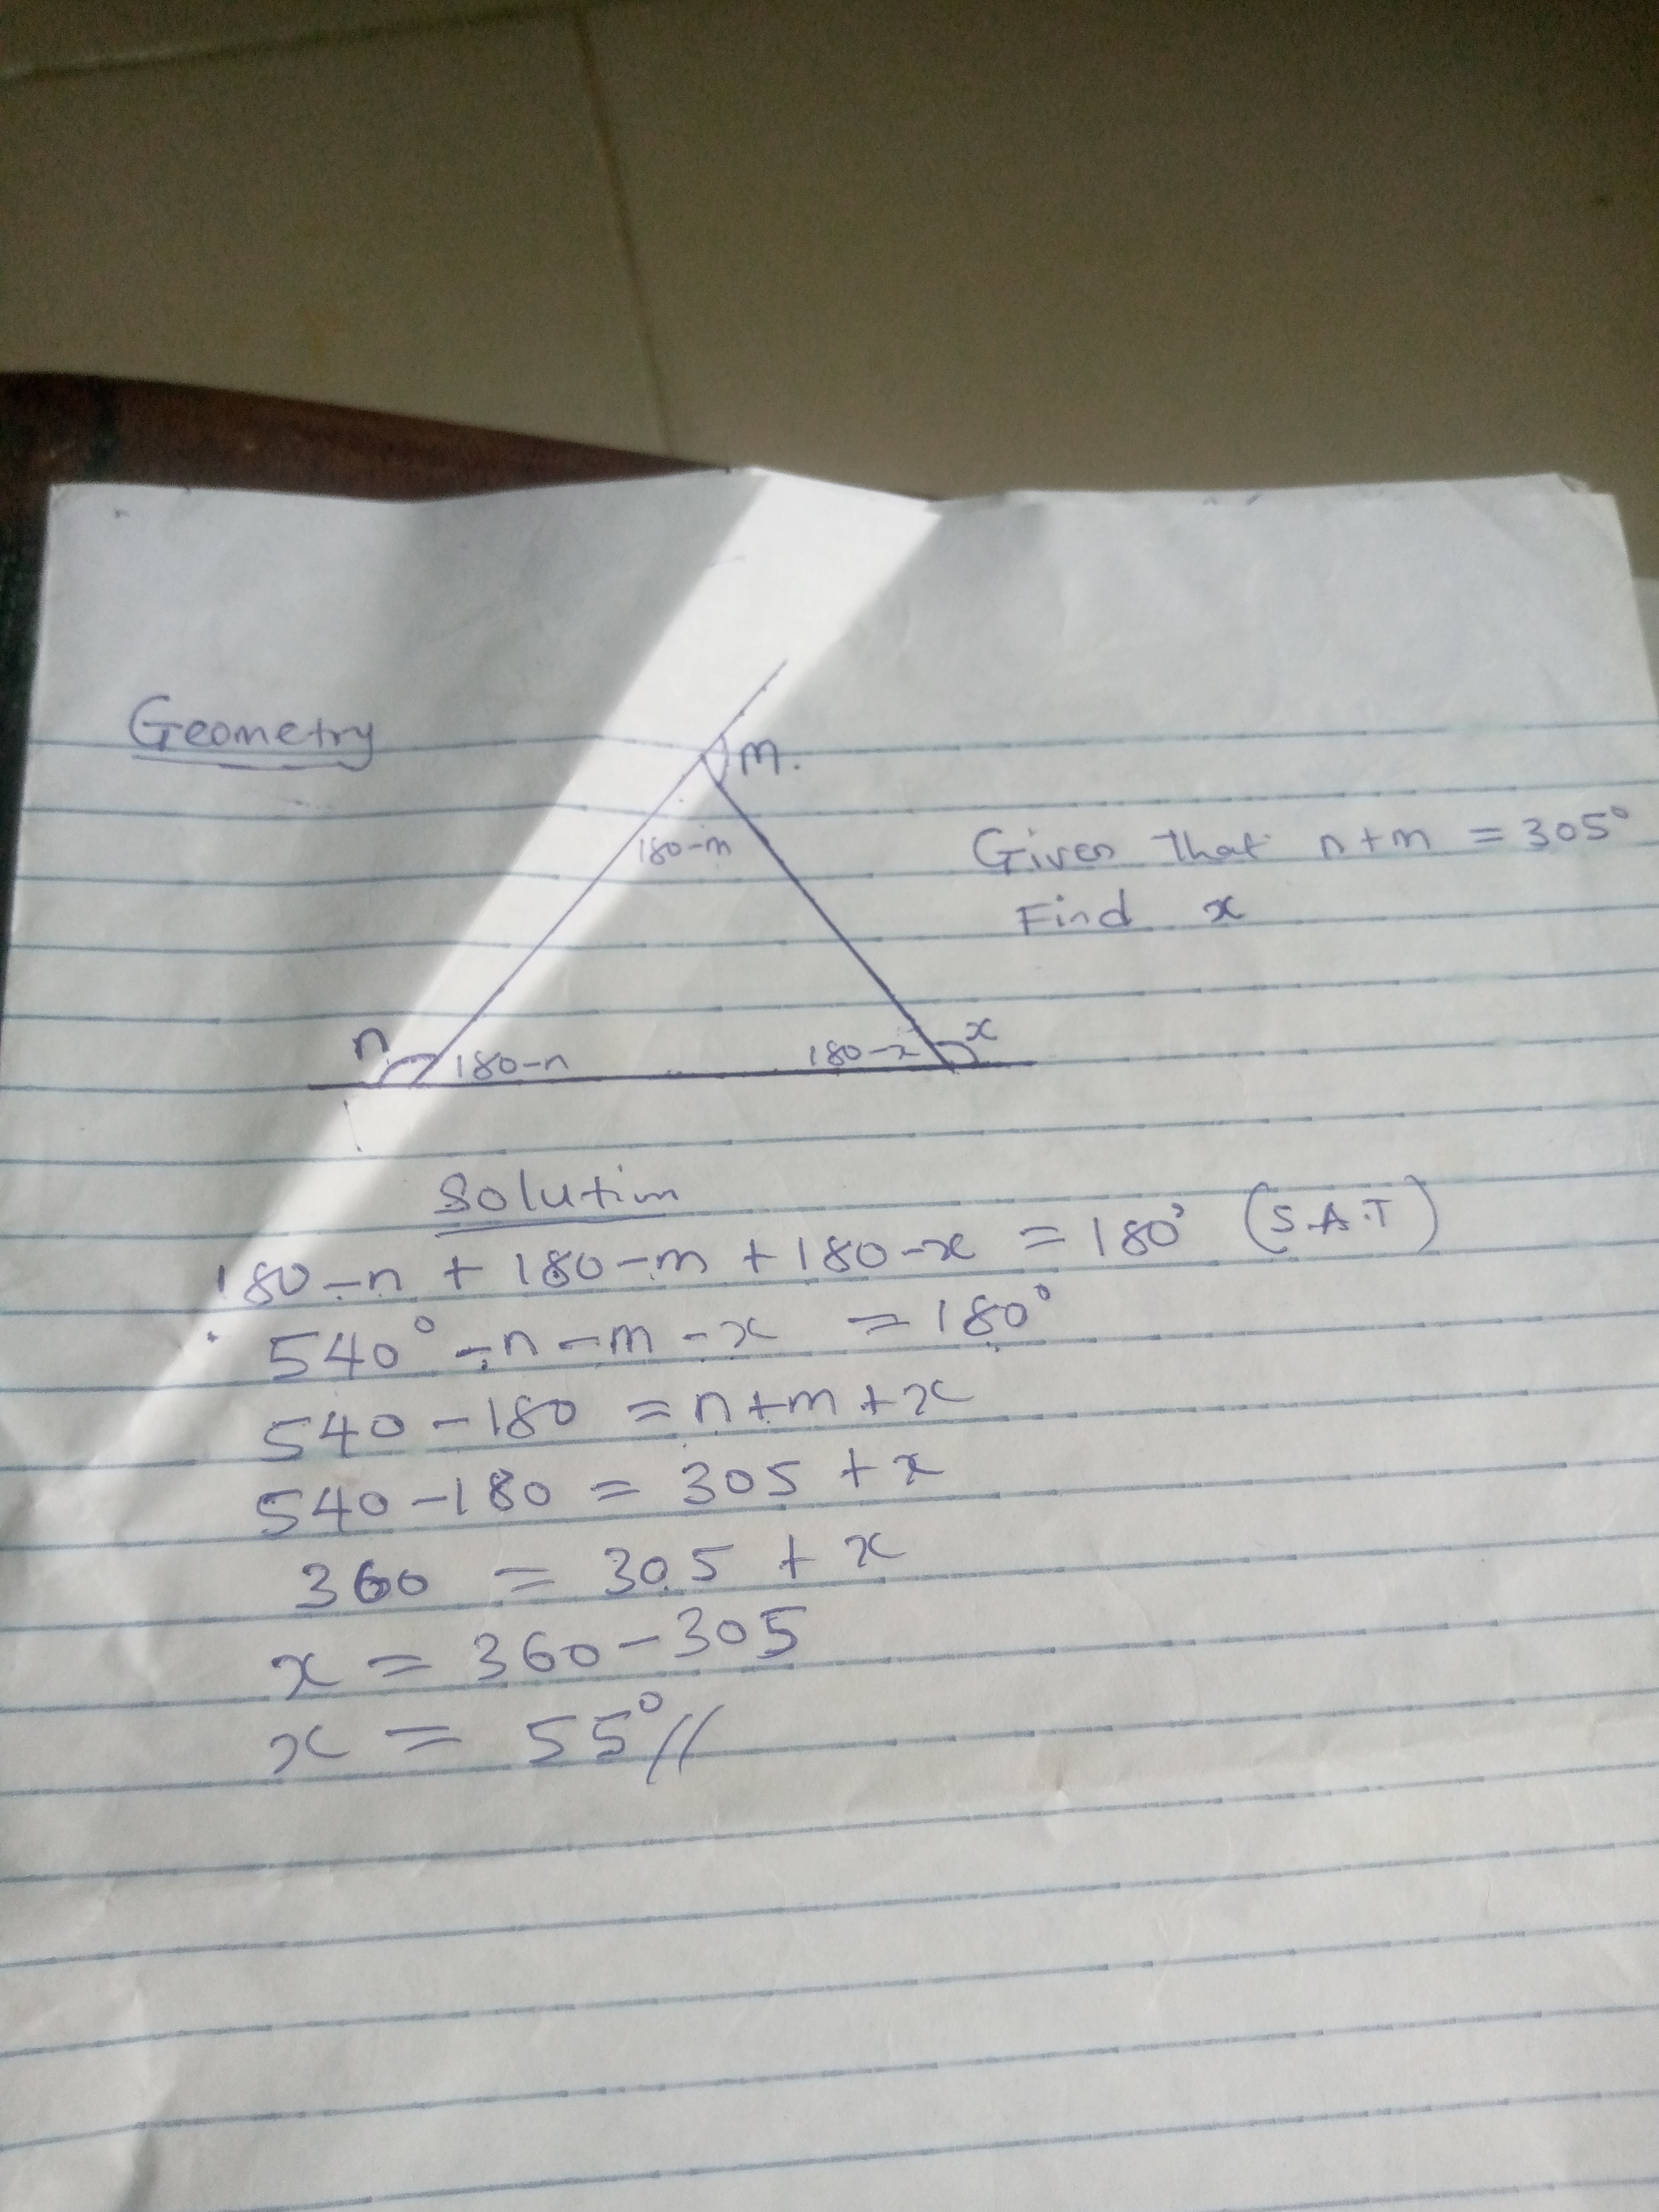 Geometry
m.
180-m
Given that n+m = 305°
Find x
n
180-n
180-x
x
Solution
180-n + 180-m + 180-x = 180° (S.A.T)
540° -n-m-x = 180°
540-180 = n+m+x
540-180 = 305 + x
360 = 305 + x
x = 360-305
x = 55°//